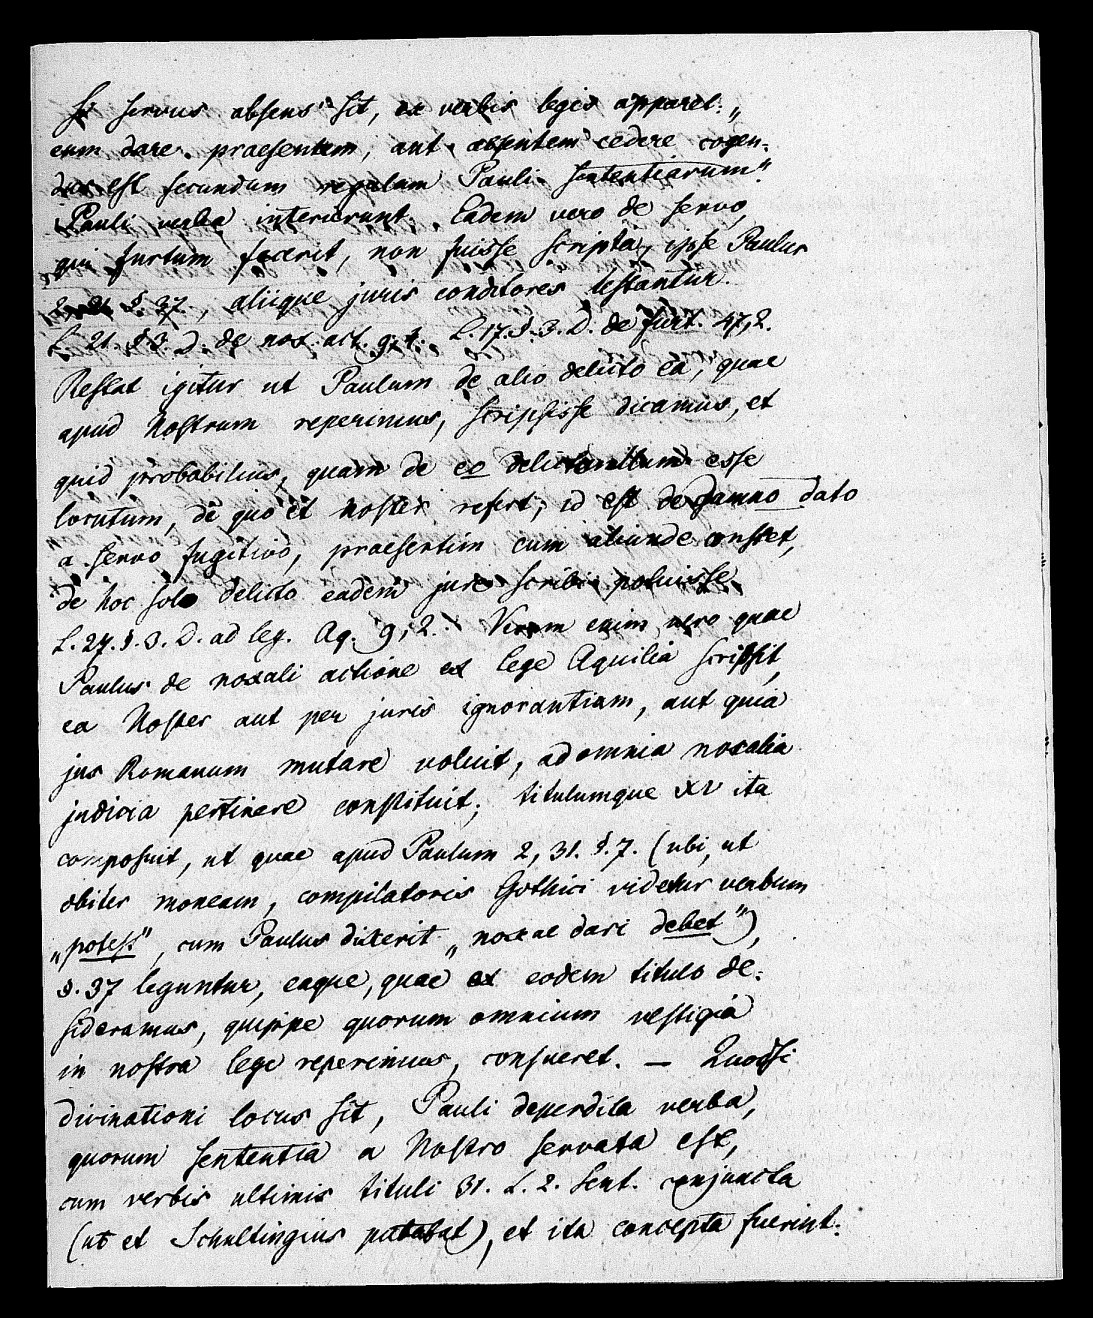 Si servus absens sit, ex verbis legis apparet: „
eum dare praesentem, aut absentem cedere cogen-
dus est secundum regulam Pauli Sententiarum."
Pauli verba interierunt. Eadem vero de servo,
qui furtum fecerit, non fuisse scripta, ipse Paulus
§. 37., aliique juris conditores testantur.
L. 21. §. 3. D. de nox. act. 9, 4. L. 17. §. 3. D. de furt. 47, 2.
Restat igitur ut Paulum de alio delicto ea, quae
apud Nostrum reperimus, scripsisse dicamus, et
quid probabilius, quam de eo delicto illum esse
locutum, de quo et Noster refert, id est de damno dato
a servo fugitivo, praesertim cum aliunde constet,
de hoc solo delicto eadem jure scribi potuisse
L. 27. §. 3. D. ad leg. Aq. 9, 2. Verum enim vero quae
Paulus de noxali actione ex lege Aquilia scripsit,
ea Noster aut per juris ignorantiam, aut quia
jus Romanum mutare voluit, ad omnia noxalia
judicia pertinere constituit; titulumque XV ita
composuit, ut quae apud Paulum 2, 31. §. 7. (ubi, ut
obiter moneam, compilatoris Gothici videtur verbum
„potest", cum Paulus dixerit „noxae dari debet"),
§. 37 leguntur, eaque, quae ex eodem titulo de-
sideramus, quippe quorum omnium vestigia
in nostra lege reperimus, consueret. — Quodsi
divinationi locus sit, Pauli deperdita verba,
quorum sententia a Nostro servata est,
cum verbis ultimis tituli 31. L. 2. Sent. conjuncta
(ut et Schultingius putabat), et ita concepta fuerint: